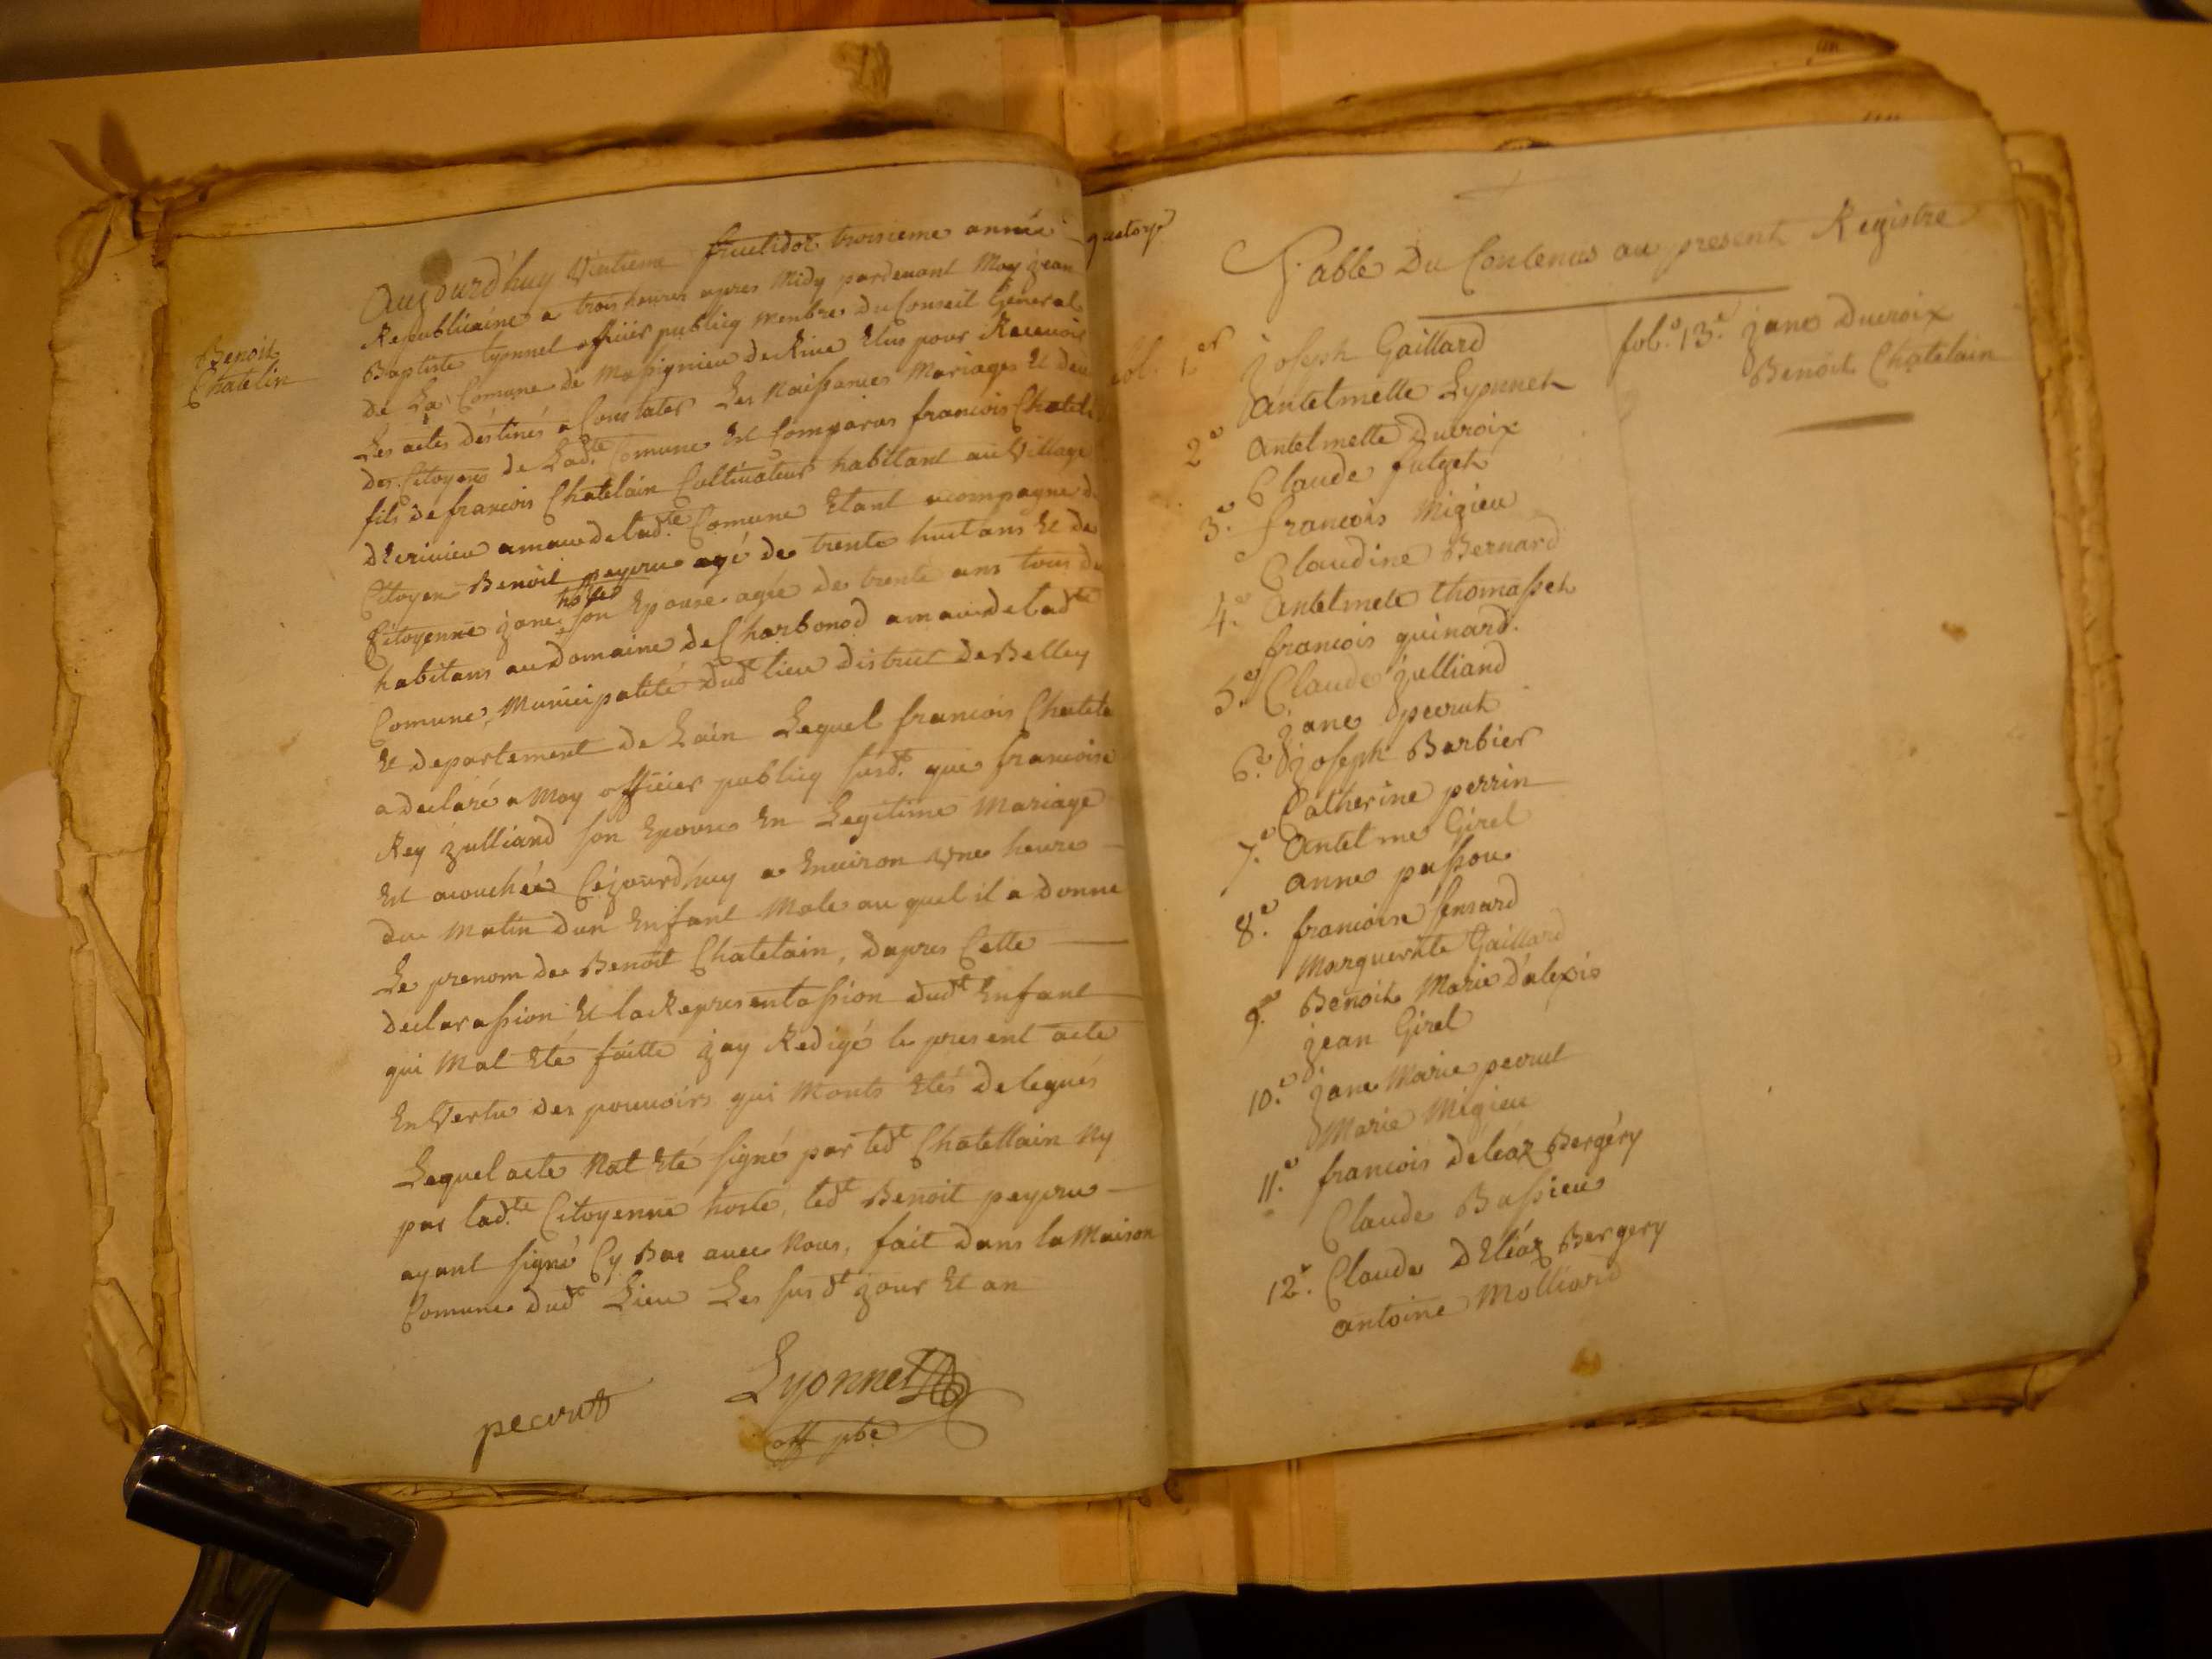 Benoit
Chatelin
Aujourd'huy Vintieme fructidor troisieme année
Republicaine a trois heures apres Midy pardevant Moy jean
Baptiste Lyonnet officier publicq Menbre du Conseil General
de La Comune de Massignieu de Rive Elus pour Recevoir
Les actes déstinés a Constater Les Naissances Mariages Et deces
des Citoyens de Ladte Comune Est Comparus francois Chatelain
fils de francois Chatelain Cultivateur habitant au Village
amaude ladte Comune Etant acompagner du
Citoyen Benoit peycru agé de trente huit ans Et de
Citoyenne jane hoste son Epouse agée de trente ans tous deux
habitans au domaine de Charbonod amaude ladte
Comune, Municipalité dudt lieu district de Belley
Et departement de Lain Lequel francois Chatela
a declaré a Moy officier publicq susdt que francoise
Rey julliand son Epouse En Legitime Mariage
Est acouchée Cejourdhuy a Environ Une heure
du Matin dun Enfant Male au quel il a donne
Le prenom de Benoit Chatelain, dapres Cette
declarassion Et la Representassion dudt Enfant
qui Mat Eté faitte jay Redigé le present acte
En Vertu des pouvoirs qui Monts Etés delegués
Lequel acte Nat Eté signé par ledt Chatellain Ny
par ladte Citoyenne hoste, ledt Benoit peycru
ayant signé Cy Bas avec Nous, fait dans la Maison
Comune dudt Lieu Les susdt jour Et an
pecrut
Lyonnet
off pbc
quatorze
Table Du Contenus au present Registre
fol. 1er joseph Gaillard
Antelmette Lyonnet
2e Antelmette Ducroix
Claude
3e francois Migieu
Claudine Bernard
4e Antelmete thomasset
francois guinard.
5e Claude julliand
jane pecrut
6e joseph Barbier
Catherine perrin
7e Antelme Girel
anne passou
8e francoise
Marguerite Gaillard
9e Benoit Marie d'alexis
jean Girel
10e jane Marie pecrut
Marie Migieu
11e francois deléaz Bergéry
Claude Bassieu
12e Claude dEléaz Bergery
antoine Molliard
fol. 13e jane Ducroix
Benoit Chatelain